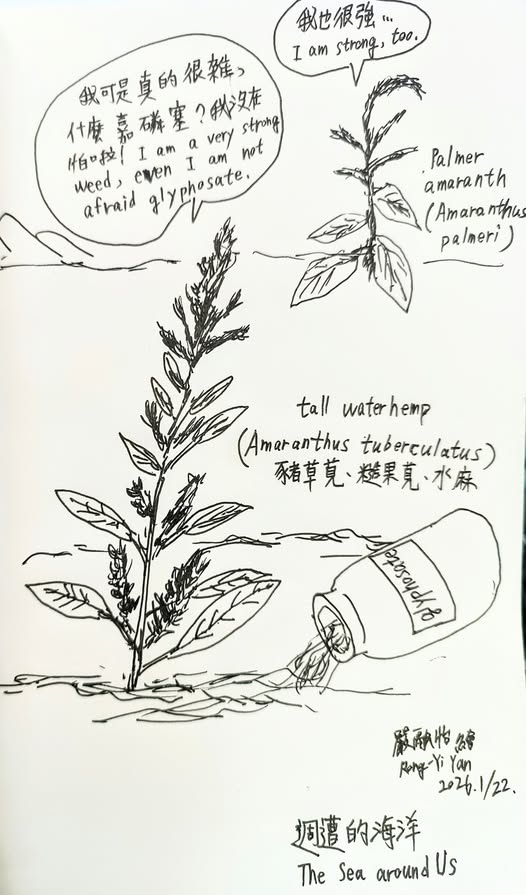 我也很強…
I am strong, too.
我可是真的很雜,
什麼嘉磷塞?我沒在
怕啦! I am a very strong
weed, even I am not
afraid glyphosate.
Palmer
amaranth
(Amaranthus
palmeri)
tall waterhemp
(Amaranthus tuberculatus)
豬草莧、糙果莧、水麻
glyphosate
嚴融怡繪
Rong-Yi Yan
2026.1/22.
週遭的海洋
The Sea around Us